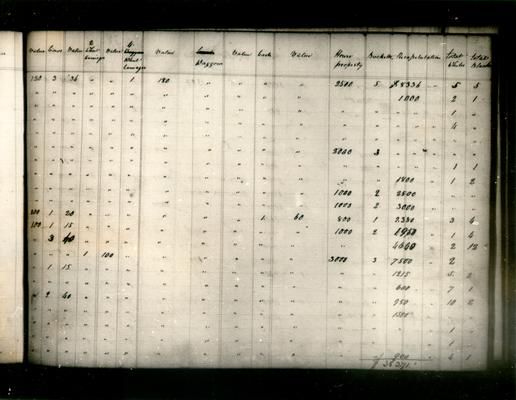 Value Cows Value 2 Wheel Carriages Value 4 Wheel Carriages Value Waggons Value Clock Value House property Buckets Recapitulation Total Whites Total Blacks
150 3 36 " 1 180 " " " " 2500 5 $8336 5 5
" " " " " " " " " " " " 1000 2 1
" " " " " " " " " " " " " 1 "
" " " " " " " " " " " " " 4 "
" " " " " " " " " " " " " " "
" " " " " " " " " " 2000 3 " " "
" " " " " " " " " " " " " 1 1
" " " " " " " " " " " " 1400 1 2
" " " " " " " " " " 1000 2 2800
" " " " " " " " " " 1000 2 3000
200 1 20 " " " " " " 1 60 800 1 2380 3 4
100 1 15 " " " " " " " " 1000 2 1950 1 4
" 3 40 " " " " " " " " " " 4640 2 12
" " " 1 100 " " " " " " 3000 3 7500 2
" 1 15 " " " " " " " " " " 1215 5 2
" " " " " " " " " " " " 600 7 1
" 2 40 " " " " " " " " " " 950 10 2
" " " " " " " " " " " " 1500
" " " " " " " " " " " " " 1
" " " " " " " " " " " " " 1
" " " " " " " " " " " " 900 4 1